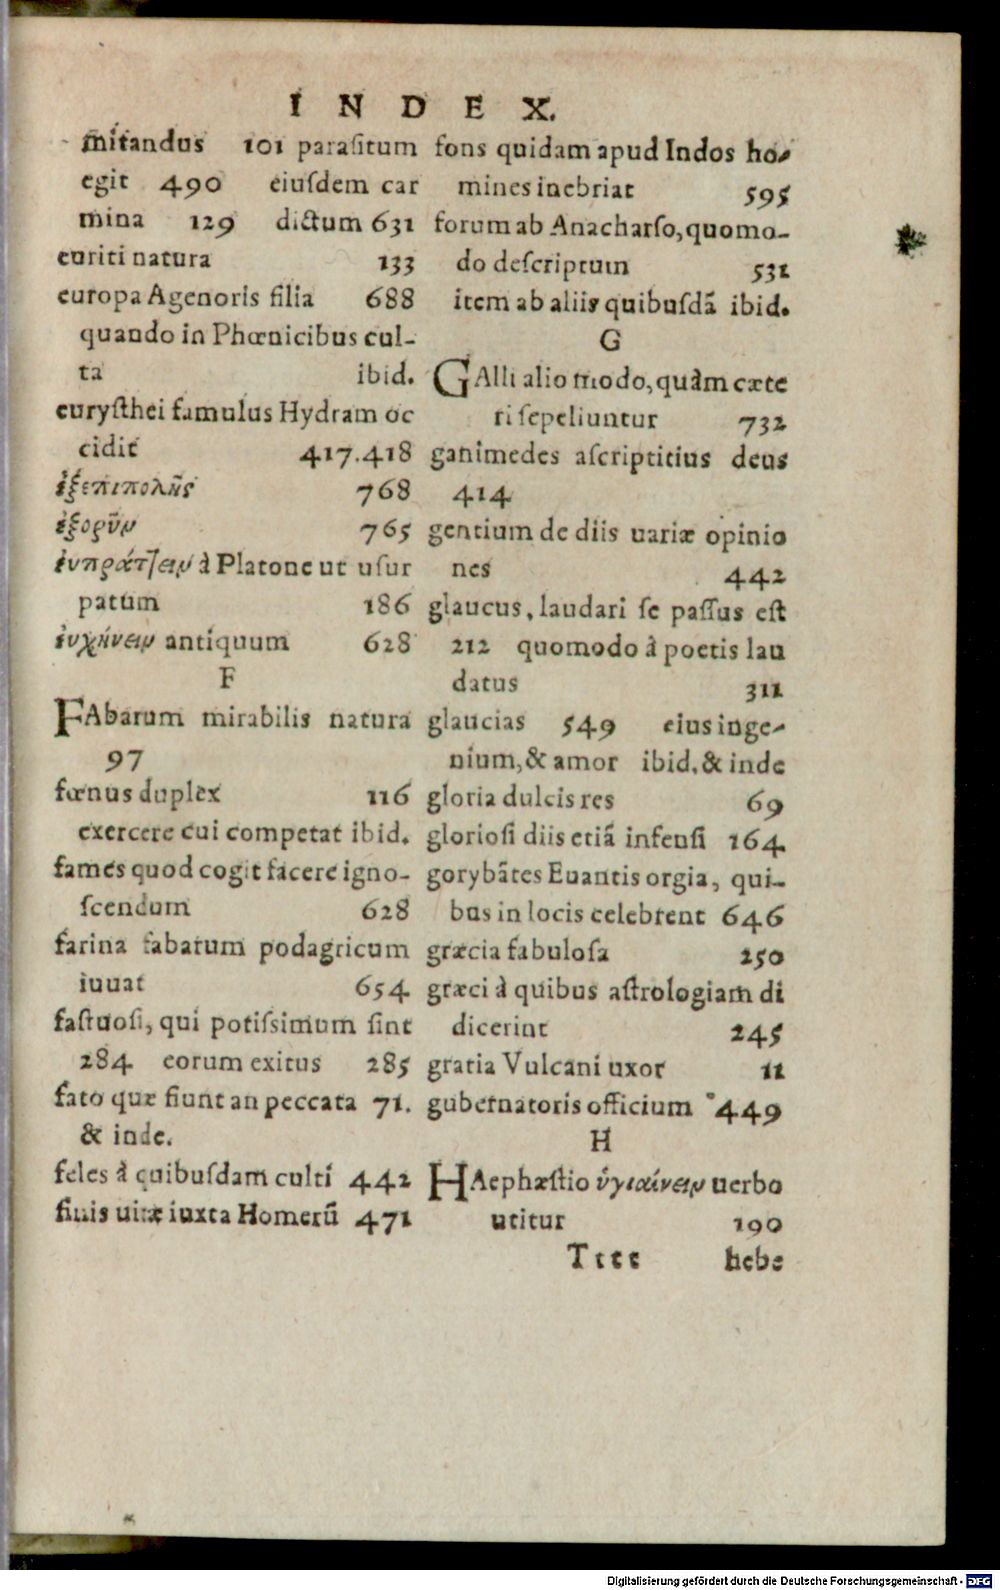 INDEX.
mitandus 101 parasitum
egit 490 eiusdem car
mina 129 dictum 631
euriti natura 133
europa Agenoris filia 688
quando in Phœnicibus cul-
ta ibid.
eurysthei famulus Hydram oc
cidit 417.418
ἐξεπιπολῆς 768
ἐξορῦν 765
ἐυπράττειν à Platone ut usur
patum 186
ἐυχήνειν antiquum 628
F
FAbarum mirabilis natura
97
fœnus duplex 116
exercere cui competat ibid.
fames quod cogit facere igno-
scendum 628
farina fabarum podagricum
iuuat 654
fastuosi, qui potissimum sint
284 eorum exitus 285
fato quæ fiunt an peccata 71.
& inde.
feles à quibusdam culti 442
finis uitæ iuxta Homerũ 471
fons quidam apud Indos ho-
mines inebriat 595
forum ab Anacharso, quomo-
do descriptum 531
item ab aliis quibusdã ibid.
G
GAlli alio modo, quàm cæte
ri sepeliuntur 732
ganimedes ascriptitius deus
414
gentium de diis uariæ opinio
nes 442
glaucus, laudari se passus est
212 quomodo à poetis lau
datus 311
glaucias 549 eius inge-
nium, & amor ibid. & inde
gloria dulcis res 69
gloriosi diis etiã infensi 164
gorybãtes Euantis orgia, qui-
bus in locis celebrent 646
græcia fabulosa 250
græci à quibus astrologiam di
dicerint 245
gratia Vulcani uxor 11
gubernatoris officium 449
H
HAephæstio ὑγιαίνειν uerbo
utitur 190
Tttt hebe
Digitalisierung gefördert durch die Deutsche Forschungsgemeinschaft - DFG